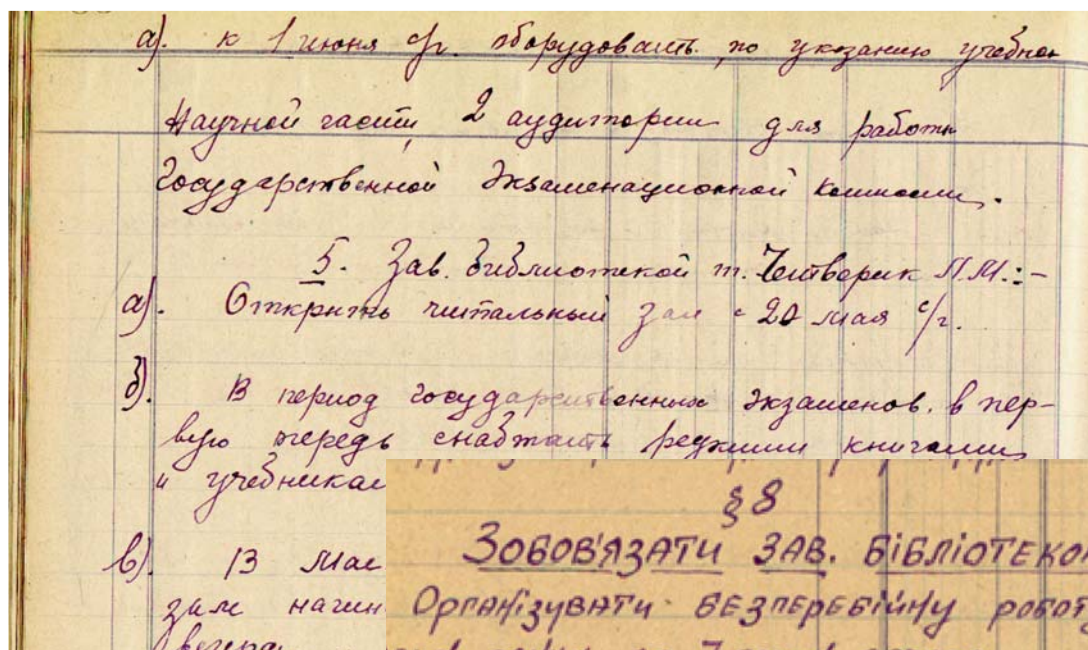 а). к 1 июня с/г. оборудовать, по указанию учебной
научной части, 2 аудитории для работы
государственной экзаменационной комиссии.
5. Зав. библиотекой т. Четверик М.М.:-
а). Открыть читальный зал с 20 мая с/г.
б). В период государственных экзаменов в пер-
вую очередь снабжать редкими книгами
и учебникам
в). В мае
зале начин
вечера
§ 8
Зобов'язати зав. бібліотекою
Організувати безперебійну роботу